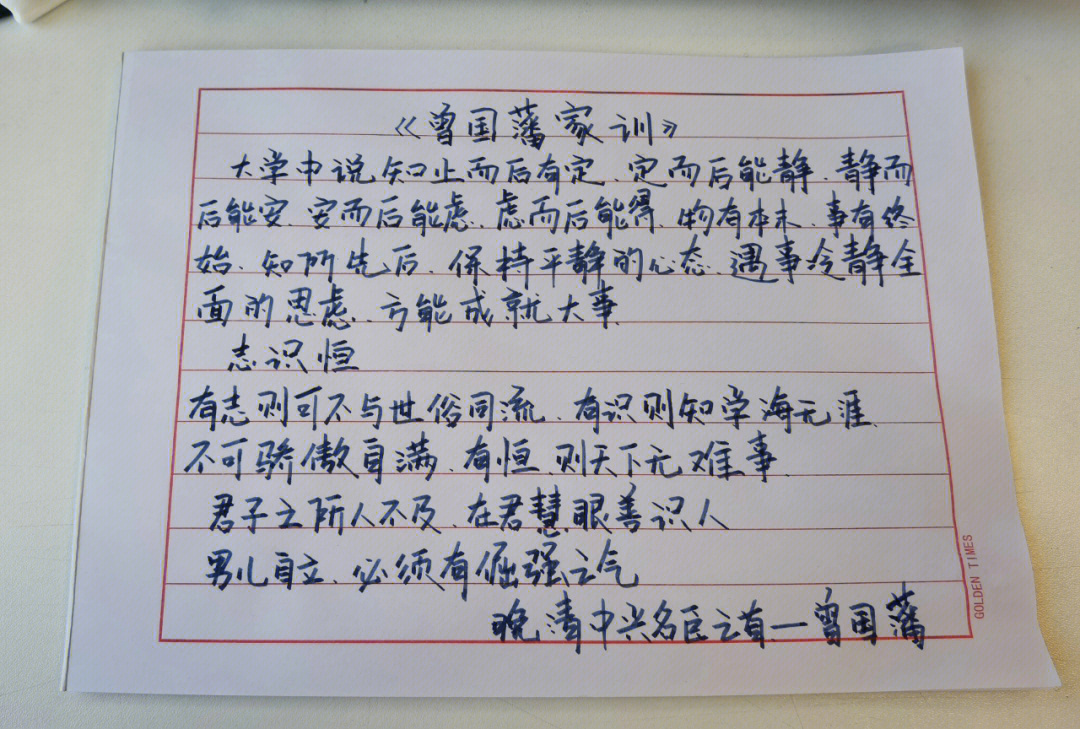 《曾国藩家训》
大学中说知止而后有定、定而后能静、静而
后能安、安而后能虑、虑而后能得、物有本末、事有终
始、知所先后、保持平静的心态、遇事冷静全
面的思虑、方能成就大事
志识恒
有志则可不与世俗同流、有识则知学海无涯、
不可骄傲自满、有恒则天下无难事、
君子之所人不及、在君慧眼善识人
男儿自立、必须有倔强之气
晚清中兴名臣之首一曾国藩
GOLDEN TIMES